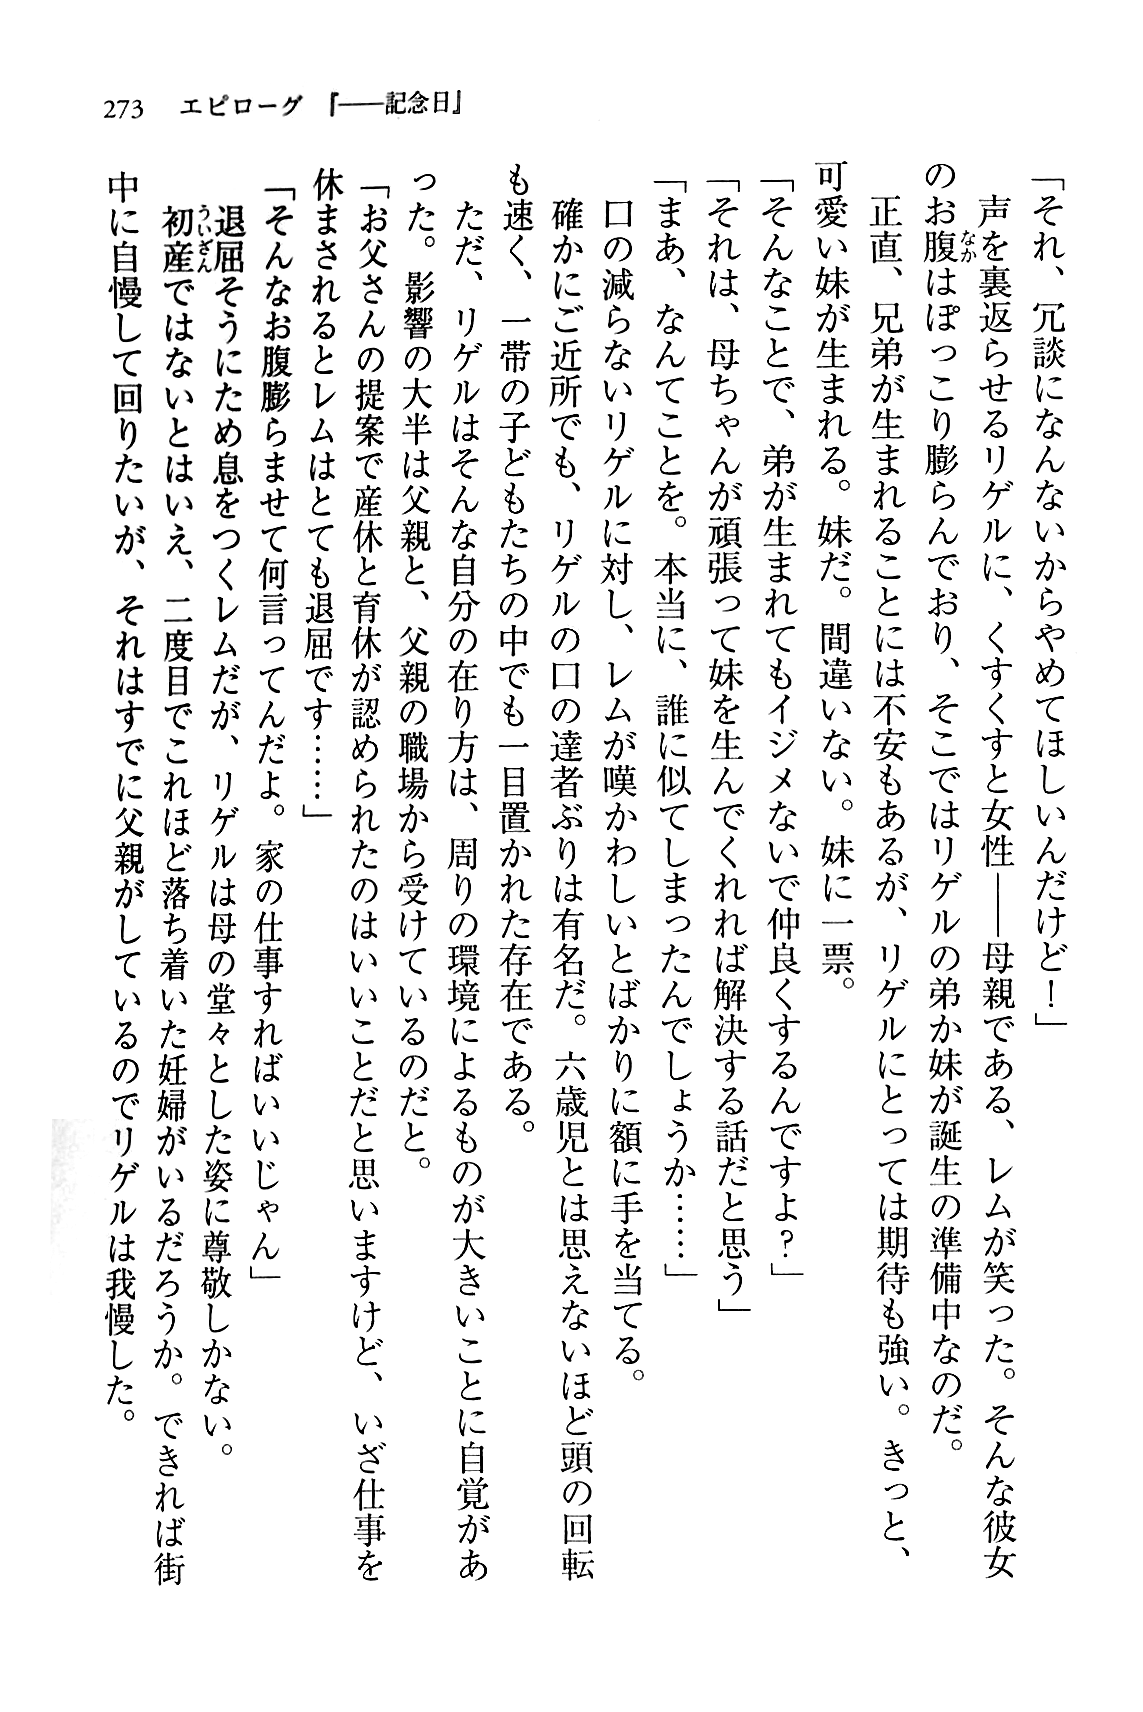 273　エピローグ　『――記念日』
「それ、冗談になんないからやめてほしいんだけど！」
　声を裏返らせるリゲルに、くすくすと女性――母親である、レムが笑った。そんな彼女
のお腹はぽっこり膨らんでおり、そこではリゲルの弟か妹が誕生の準備中なのだ。
　正直、兄弟が生まれることには不安もあるが、リゲルにとっては期待も強い。きっと、
可愛い妹が生まれる。妹だ。間違いない。妹に一票。
「そんなことで、弟が生まれてもイジメないで仲良くするんですよ？」
「それは、母ちゃんが頑張って妹を生んでくれれば解決する話だと思う」
「まあ、なんてことを。本当に、誰に似てしまったんでしょうか……」
　口の減らないリゲルに対し、レムが嘆かわしいとばかりに額に手を当てる。
　確かにご近所でも、リゲルの口の達者ぶりは有名だ。六歳児とは思えないほど頭の回転
も速く、一帯の子どもたちの中でも一目置かれた存在である。
　ただ、リゲルはそんな自分の在り方は、周りの環境によるものが大きいことに自覚があ
った。影響の大半は父親と、父親の職場から受けているのだと。
「お父さんの提案で産休と育休が認められたのはいいことだと思いますけど、いざ仕事を
休まされるとレムはとても退屈です……」
「そんなお腹膨らませて何言ってんだよ。家の仕事すればいいじゃん」
　退屈そうにため息をつくレムだが、リゲルは母の堂々とした姿に尊敬しかない。
　初産ではないとはいえ、二度目でこれほど落ち着いた妊婦がいるだろうか。できれば街
中に自慢して回りたいが、それはすでに父親がしているのでリゲルは我慢した。